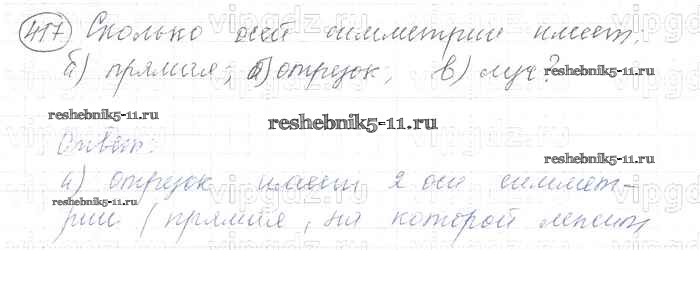 417 Сколько осей симметрии имеет:
б) прямая; а) отрезок, в) луч?
reshebnik5-11.ru
reshebnik5-11.ru
reshebnik5-11.ru
Ответ:
reshebnik5-11.ru
а) отрезок имеет 2 оси симмет-
reshebnik5-11.ru
рии (прямая, на которой лежит